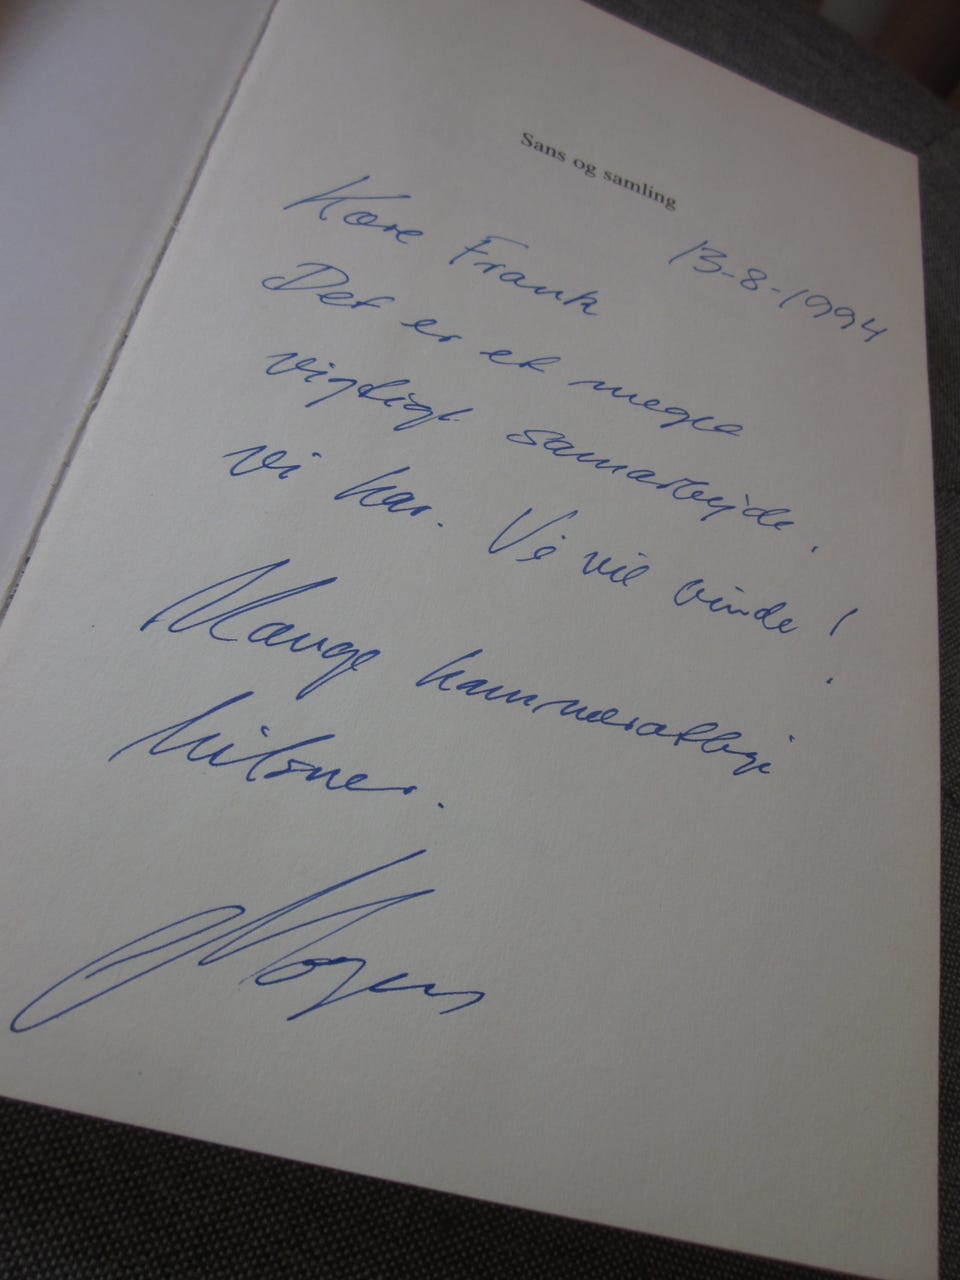 Sans og samling
13-8-1994
Kære Frank
Det er et meget
vigtigt samarbejde,
vi har. Vi vil vinde!
Mange kammeratlige
hilsner.
Mogens